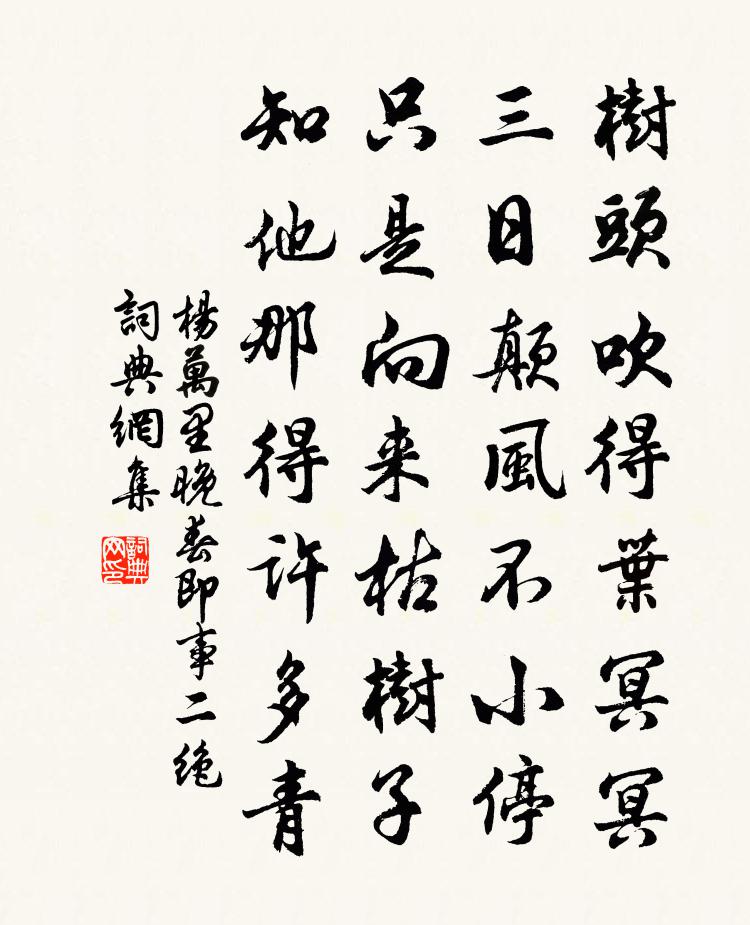 樹頭吹得葉冥冥
三日顛風不小停
只是向来枯樹子
知他那得許多青
楊萬里晚春即事二絶
詞典網集
詞典網印